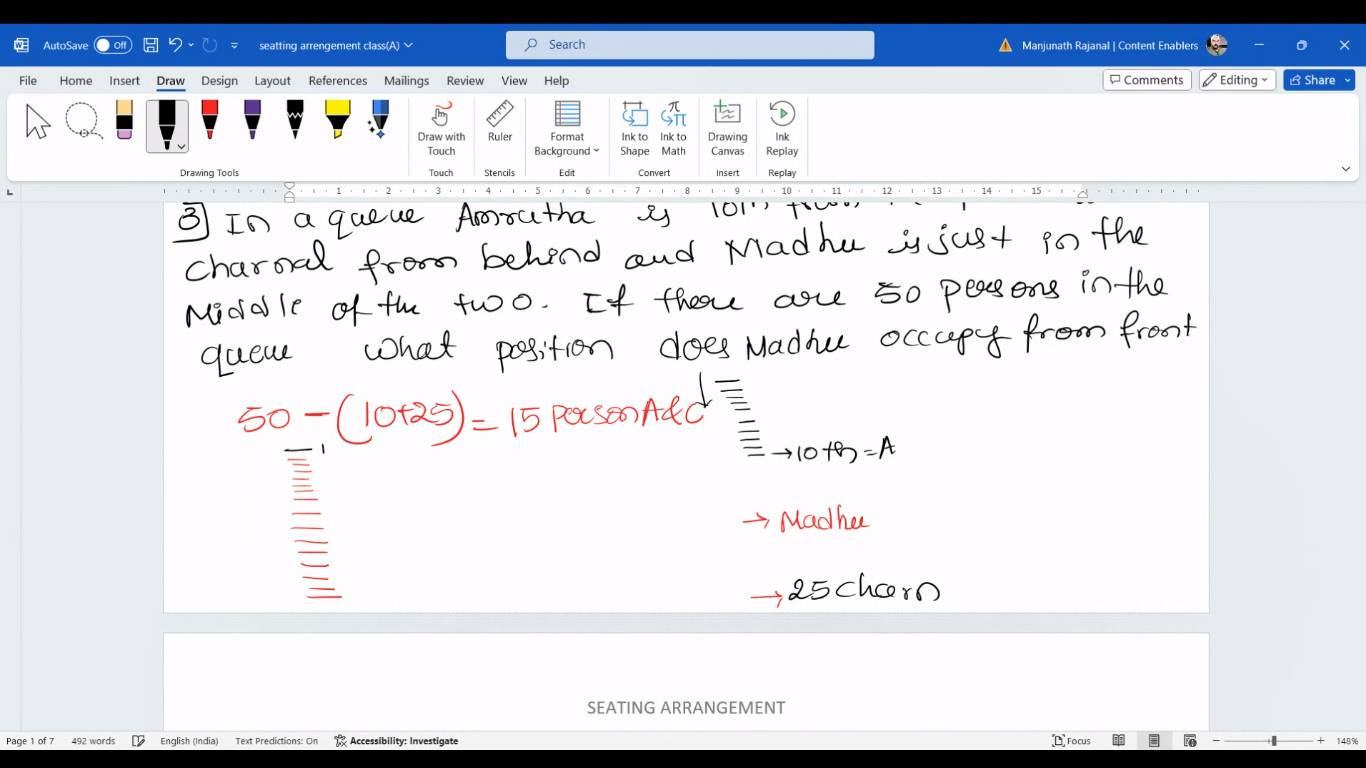 AutoSave Off seatting arrangement class(A) Search Manjunath Rajanal | Content Enablers
File Home Insert Draw Design Layout References Mailings Review View Help Comments Editing Share
Draw with Touch Ruler Format Background Ink to Shape Ink to Math Drawing Canvas Ink Replay
Drawing Tools Touch Stencils Edit Convert Insert Replay
1 2 3 4 5 6 7 8 9 10 11 12 13 14 15
3] In a queue Amrutha is 10th from
charnal from behind and Madhu is just in the
Middle of the two. If there are 50 persons in the
queue what position does Madhu occupy from front
50 - (10+25) = 15 Person A & C
1
→10th = A
→ Madhu
→ 25 Charn
SEATING ARRANGEMENT
Page 1 of 7 492 words English (India) Text Predictions: On Accessibility: Investigate Focus 148%